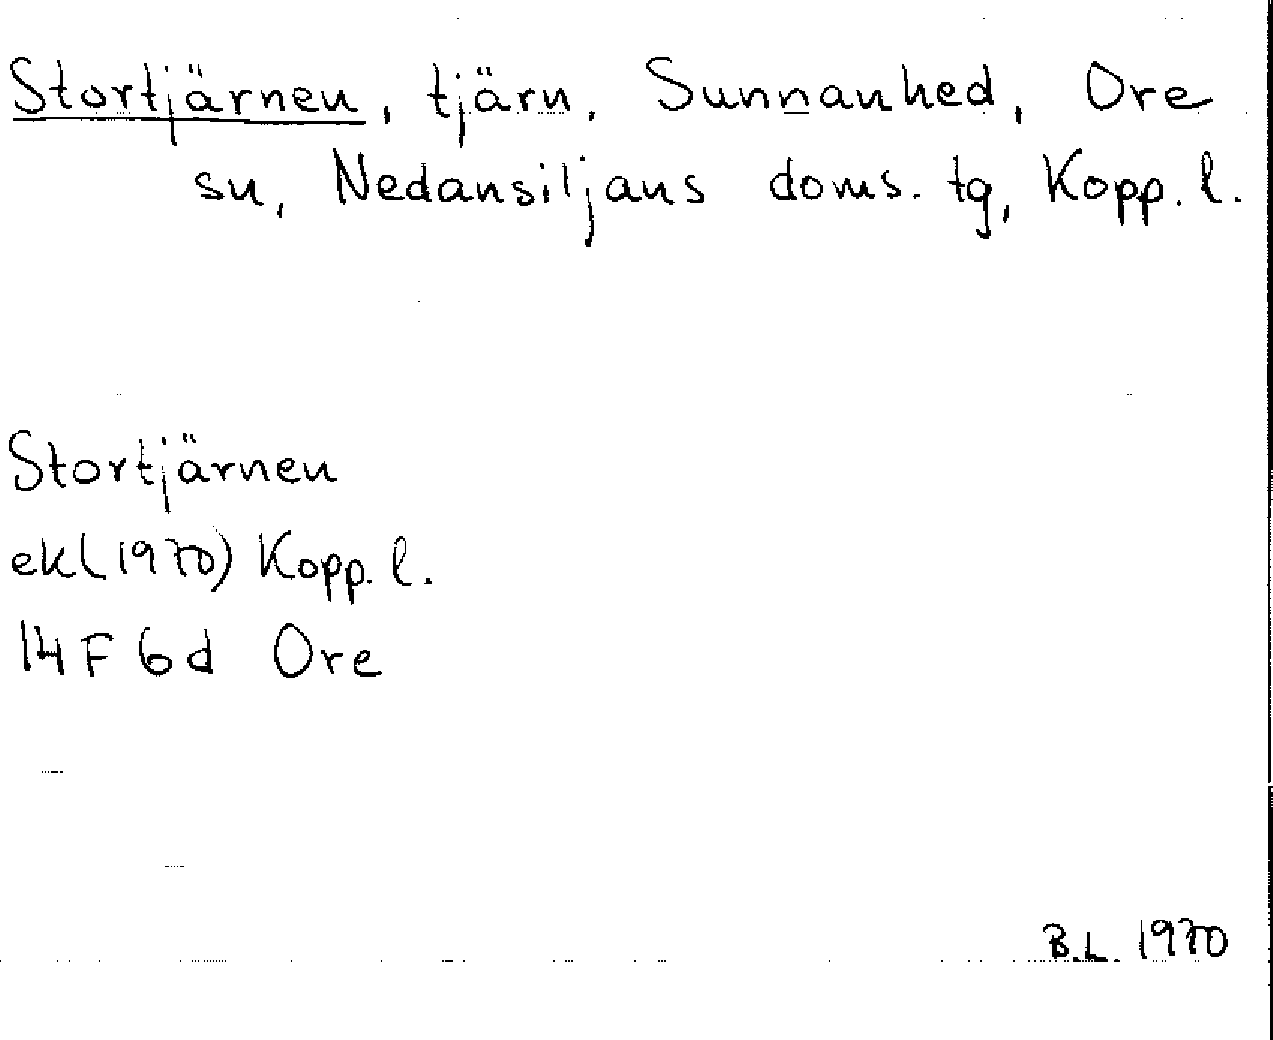 Stortjärnen, tjärn, Sunnanhed, Ore
sn, Nedansiljans doms. tg, Kopp. l.
Stortjärnen
ek (1970) Kopp. l.
14 F 6 d Ore
B.L. 1970